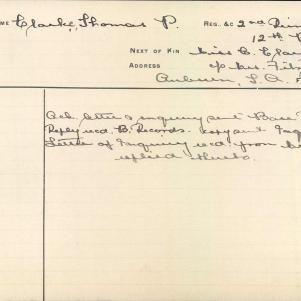 ME Clarke, Thomas P. REG. &C 2nd Divi
12th
NEXT OF KIN Miss C. Clar
ADDRESS c/o Mrs. Fitz
Auburn, S.A.
Ack. letter & inquiry sent Base
Reply recd. B. Records. copy sent
Letter of Inquiry recd. from
replied thereto.